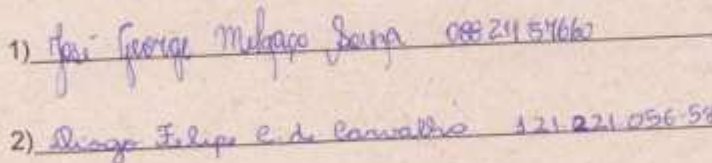 1) José George Melgaço Souza 088 241 576 60
2) Diogo Felipe C. de Carvalho 121.221.056-58